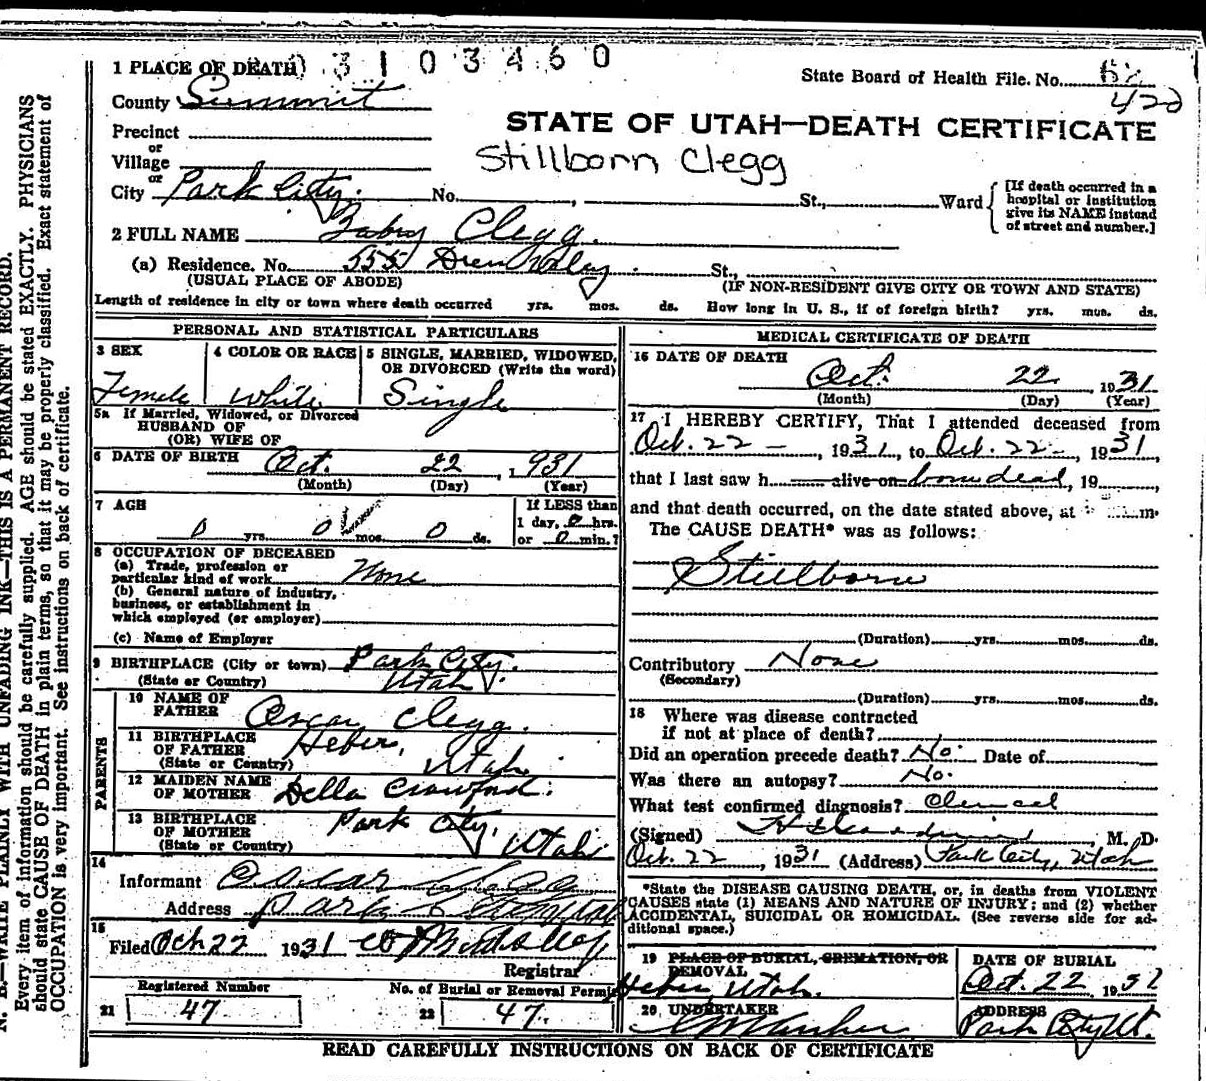 3103460
1 PLACE OF DEATH
State Board of Health File. No. 62
422
County Summit
STATE OF UTAH—DEATH CERTIFICATE
Precinct
or
Stillborn Clegg
Village
or
City Park City. No. , St., Ward
[If death occurred in a hospital or institution give its NAME instead of street and number.]
2 FULL NAME Baby Clegg.
(a) Residence. No. 555 Deer Valley St.,
(USUAL PLACE OF ABODE) (IF NON-RESIDENT GIVE CITY OR TOWN AND STATE)
Length of residence in city or town where death occurred yrs. mos. ds. How long in U. S., if of foreign birth? yrs. mos. ds.
PERSONAL AND STATISTICAL PARTICULARS
3 SEX
Female
4 COLOR OR RACE
White
5 SINGLE, MARRIED, WIDOWED,
OR DIVORCED (Write the word)
Single
5a If Married, Widowed, or Divorced
HUSBAND OF
(OR) WIFE OF
6 DATE OF BIRTH Oct. 22, 1931
(Month) (Day) (Year)
7 AGE
0 yrs. 0 mos. 0 ds.
If LESS than
1 day, 0 hrs.
or 0 min.?
8 OCCUPATION OF DECEASED
(a) Trade, profession or
particular kind of work None
(b) General nature of industry,
business, or establishment in
which employed (or employer)
(c) Name of Employer
9 BIRTHPLACE (City or town) Park City.
(State or Country) Utah
PARENTS
10 NAME OF
FATHER Oscar Clegg.
11 BIRTHPLACE
OF FATHER Heber,
(State or Country) Utah
12 MAIDEN NAME
OF MOTHER Della Crawford.
13 BIRTHPLACE
OF MOTHER Park City,
(State or Country) Utah
14
Informant Oscar Clegg
Address Park City, Utah
15
Filed Oct 22 1931
Registrar
Registered Number
21 47
No. of Burial or Removal Permit
22 47.
MEDICAL CERTIFICATE OF DEATH
16 DATE OF DEATH
Oct. 22, 1931
(Month) (Day) (Year)
17 I HEREBY CERTIFY, That I attended deceased from
Oct. 22 -, 1931, to Oct. 22 -, 1931,
that I last saw h alive on born dead, 19 ,
and that death occurred, on the date stated above, at m.
The CAUSE DEATH* was as follows:
Stillborn
(Duration) yrs. mos. ds.
Contributory None
(Secondary)
(Duration) yrs. mos. ds.
18 Where was disease contracted
if not at place of death?
Did an operation precede death? No. Date of
Was there an autopsy? No.
What test confirmed diagnosis? Clinical
(Signed) M. D.
Oct. 22, 1931 (Address) Park City, Utah
*State the DISEASE CAUSING DEATH, or, in deaths from VIOLENT
CAUSES state (1) MEANS AND NATURE OF INJURY; and (2) whether
ACCIDENTAL, SUICIDAL OR HOMICIDAL. (See reverse side for ad-
ditional space.)
19 PLACE OF BURIAL, CREMATION, OR
REMOVAL
Heber, Utah.
DATE OF BURIAL
Oct. 22 1931
20 UNDERTAKER
ADDRESS
Park City Ut.
READ CAREFULLY INSTRUCTIONS ON BACK OF CERTIFICATE
N. B.—WRITE PLAINLY WITH UNFADING INK—THIS IS A PERMANENT RECORD.
Every item of information should be carefully supplied. AGE should be stated EXACTLY. PHYSICIANS
should state CAUSE OF DEATH in plain terms, so that it may be properly classified. Exact statement of
OCCUPATION is very important. See instructions on back of certificate.